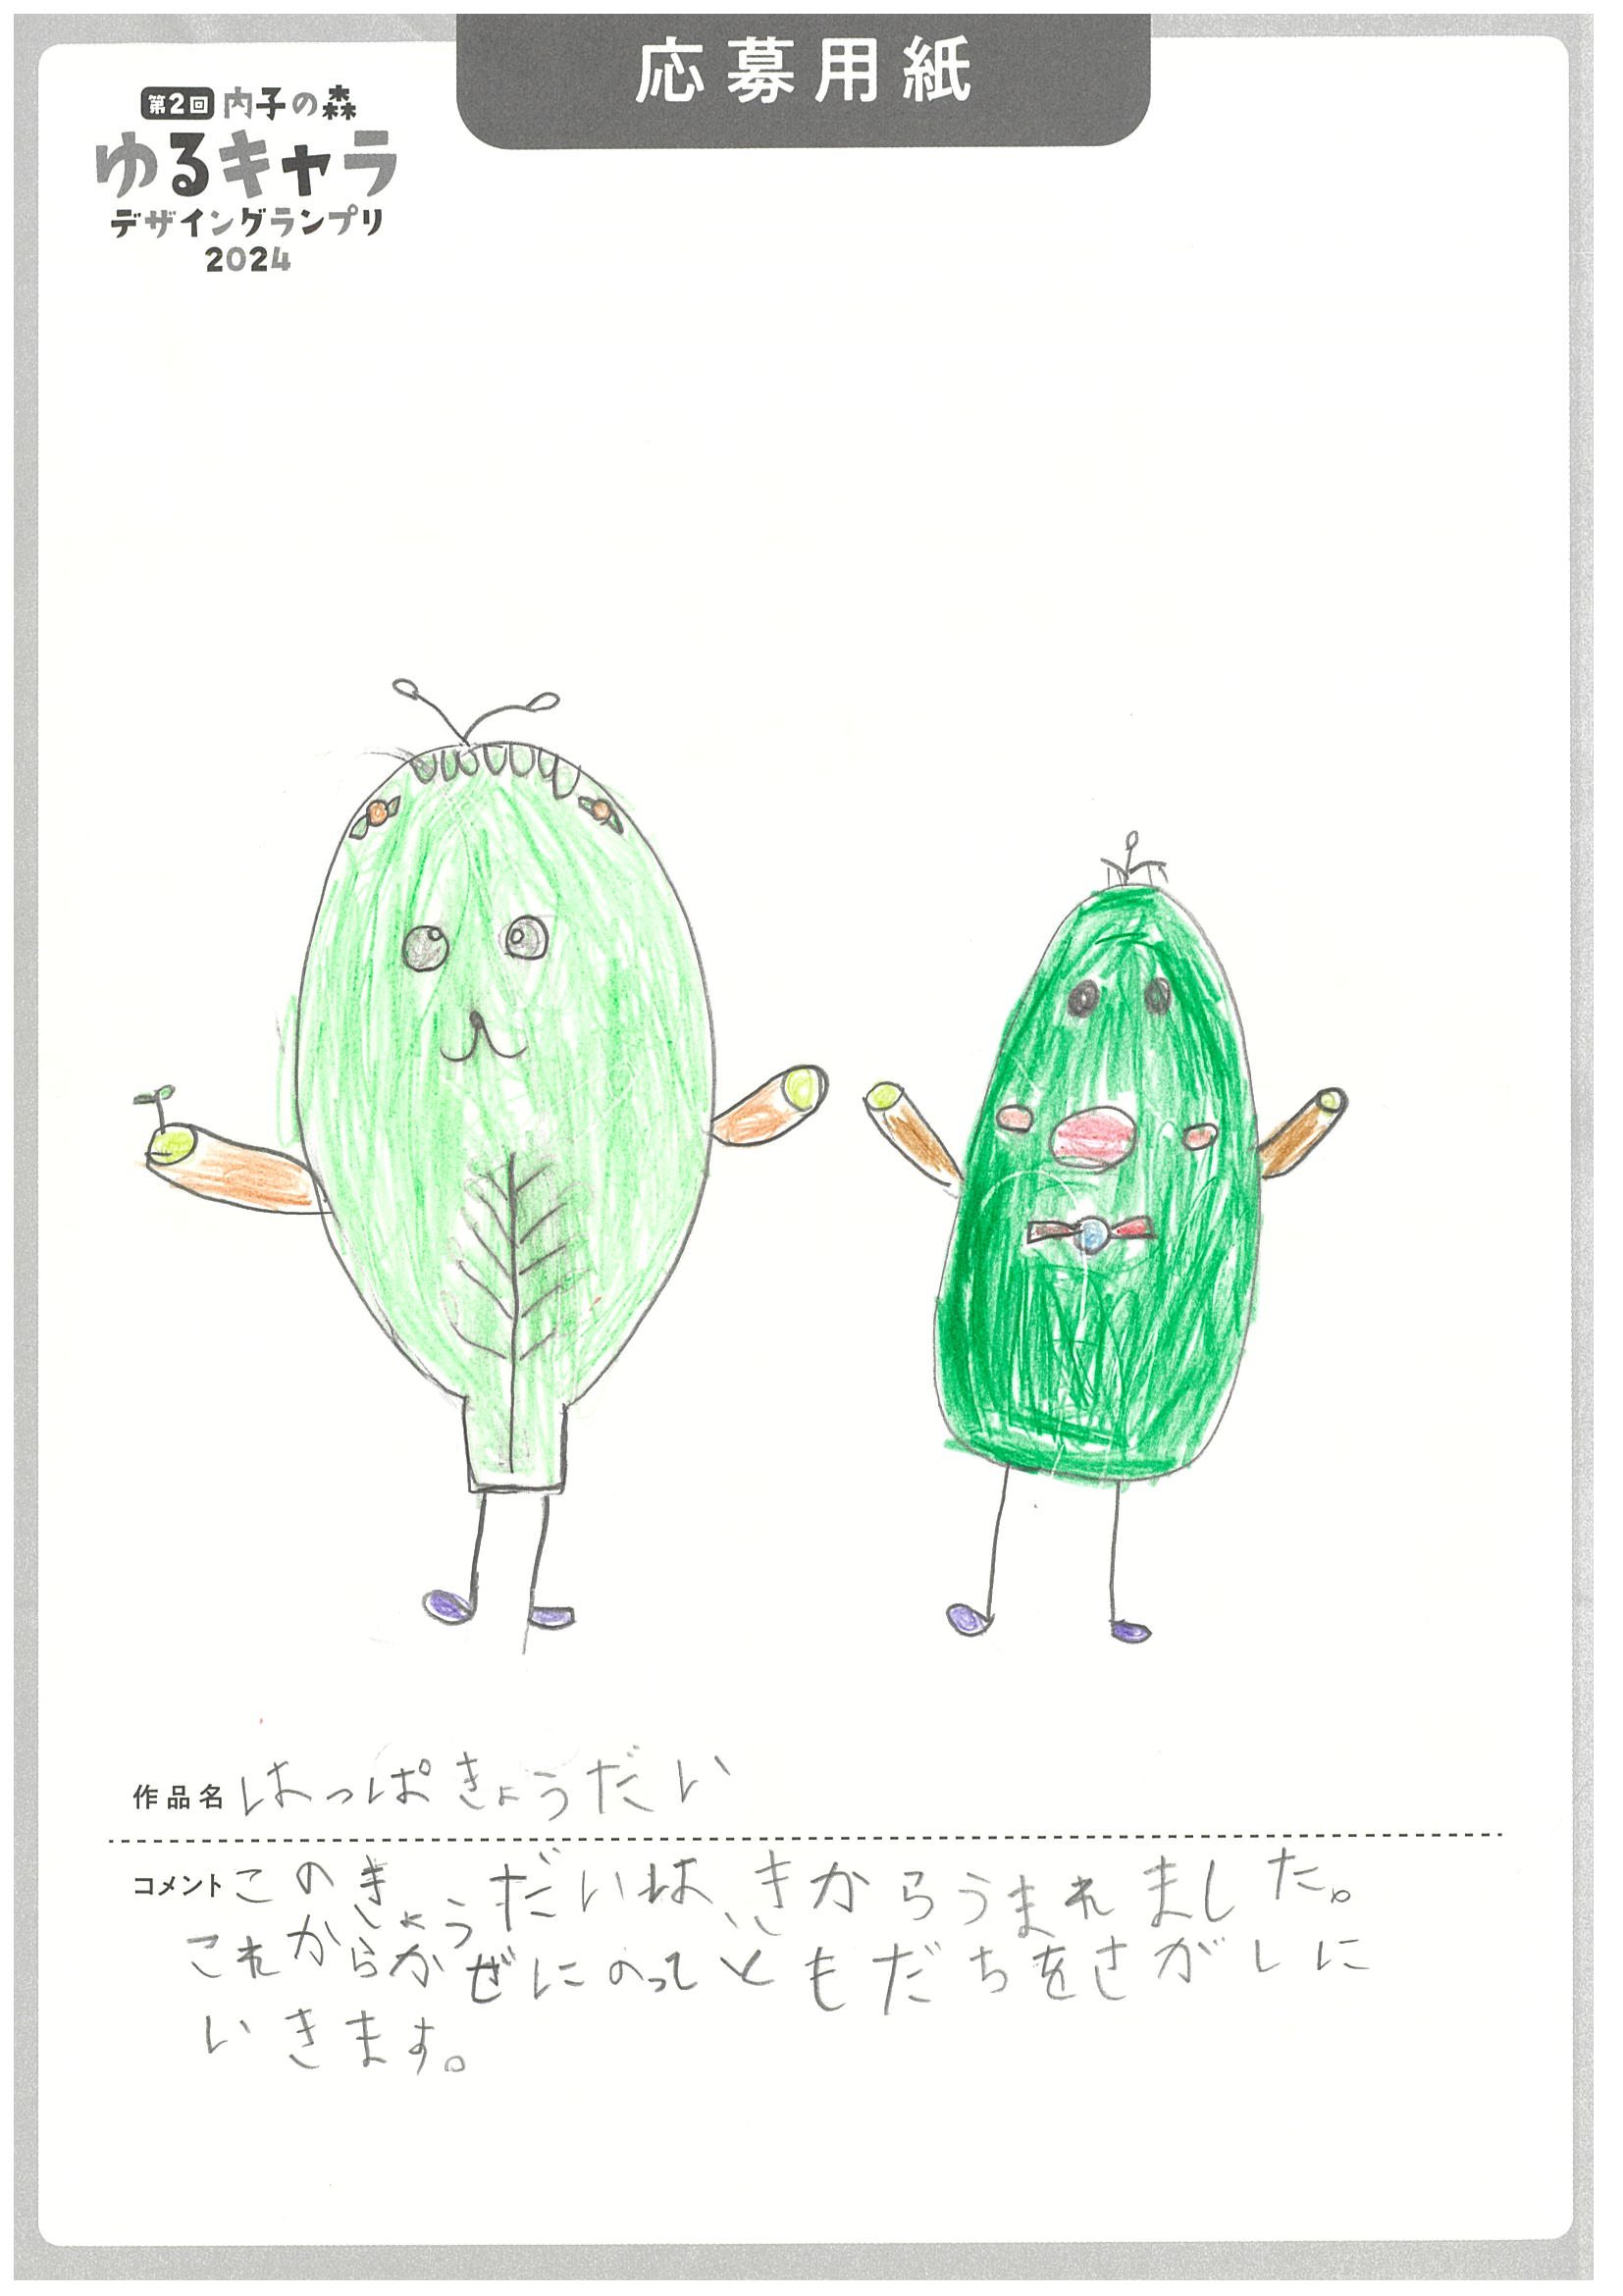 応募用紙
第2回 内子の森
ゆるキャラ
デザイングランプリ
2024
作品名 はっぱきょうだい
コメント このきょうだいは、きからうまれました。
これからかぜにのってともだちをさがしに
いきます。